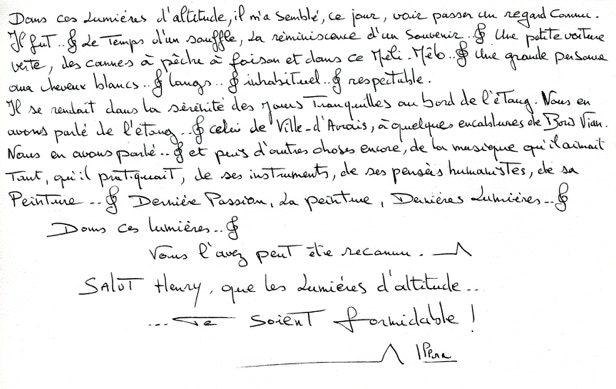 Dans ces Lumières d'altitude, il m'a semblé, ce jour, voir passer un regard connu.
Il fut.. Le Temps d'un souffle, La réminiscence d'un souvenir.. Une petite voiture
verte, des cannes à pêche à foison et dans ce Méli-Mêlo.. Une grande personne
aux cheveux blancs.. longs.. inhabituel.. respectable.
Il se rendait dans la sérénité des jours Tranquilles au bord de l'étang. Nous en
avons parlé de l'étang.. celui de Ville-d'Avrais, à quelques encablures de Boris Vian.
Nous en avons parlé.. et puis d'autres choses encore, de la musique qu'il aimait
Tant, qu'il pratiquait, de ses instruments, de ses pensées humanistes, de sa
Peinture.. Dernière Passion, La peinture, Dernières Lumières..
Dans ces lumières..
Vous l'avez peut être reconnu.
Salut Henry, que les Lumières d'altitude..
... Te soient formidable !